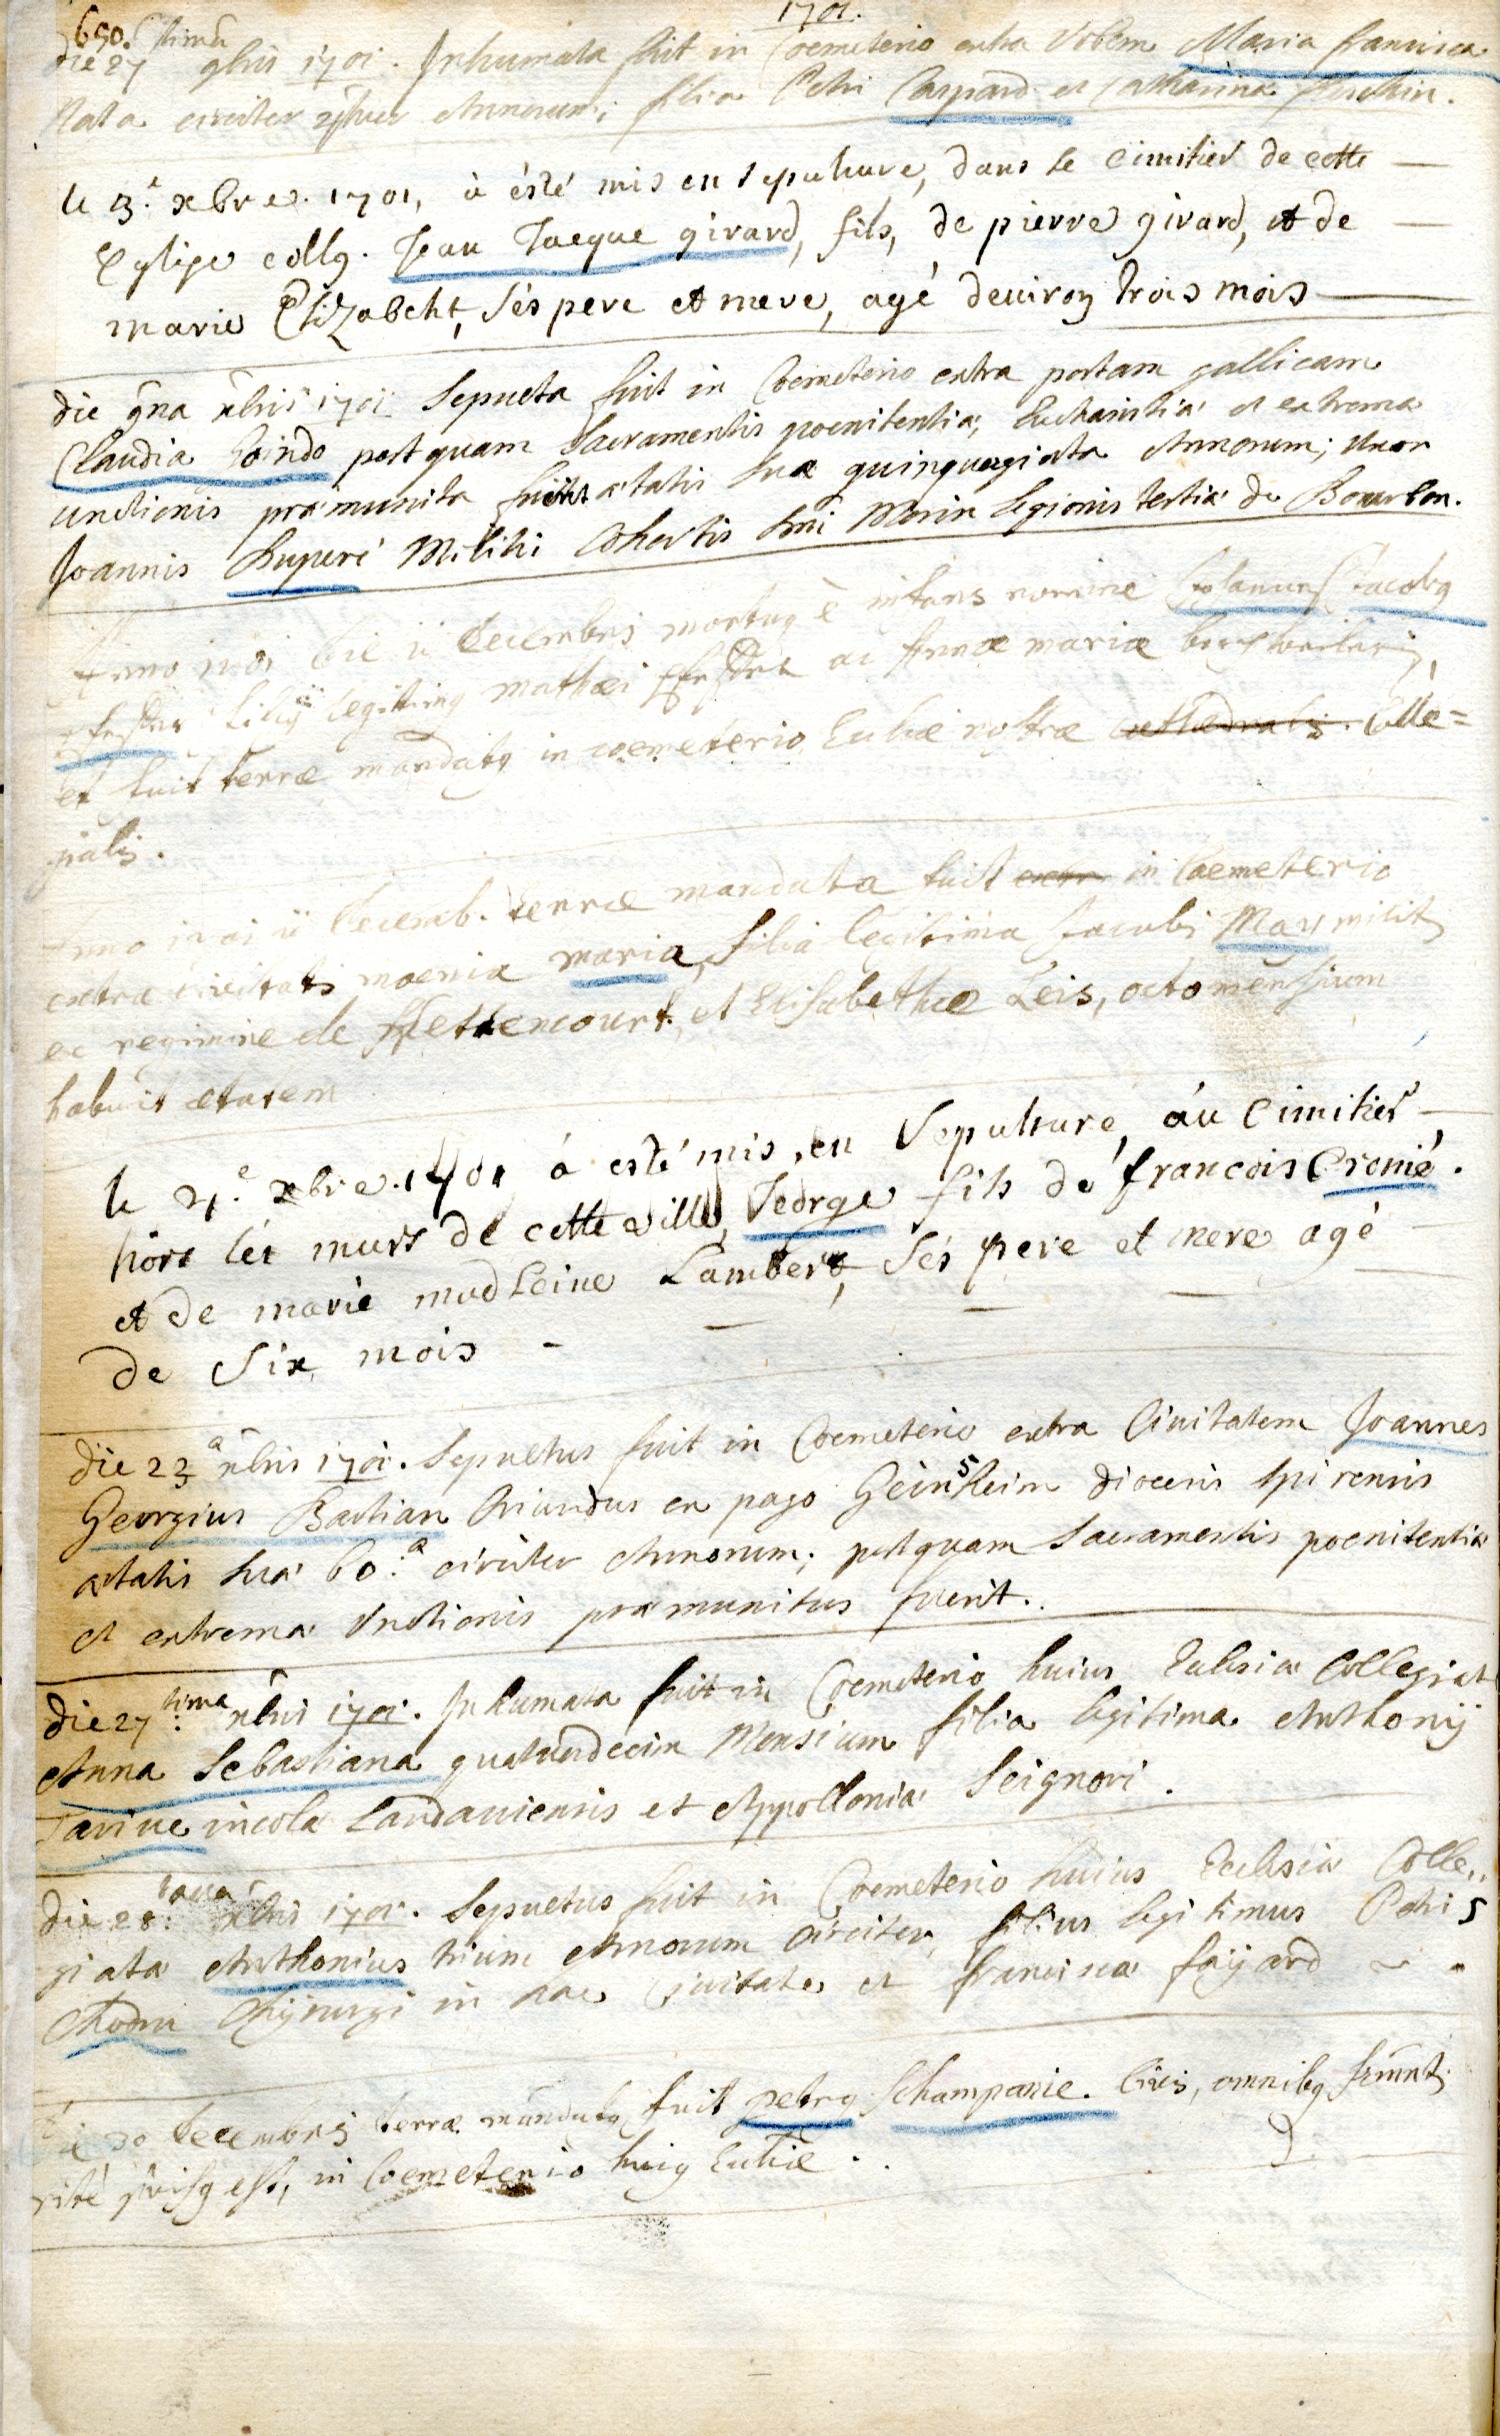 650.
1701.
die 27 tima 9bris 1701. Inhumata fuit in Coemeterio extra Urbem Maria francisca
Nata circiter Annorum; filia Petri Caspard et Catharina
le 3.e xbre. 1701, à ésté mis en sepulture, dans le Cimitier de cette
Eglise collg. Jean Jacque girard, fils, de pierre girard, et de
marie Elizabeht, sés pere et mere, agé deuiron trois mois
die 9na xbris 1701 Sepulta fuit in Coemeterio extra portam gallicam
Claudia Coindo postquam Sacramentis poenitentiæ, Eucharistiæ et extremæ
unctionis præmunita fuerit ætatis suæ quinquaginta Annorum; Uxor
Joannis Huperé Militis Cohortis Dni Morin Legionis tertiæ de Bourbon.
Anno 1701 die 11 Decembris mortuq ē infans nomine Jacobq
filiq legitimq mathæi ac Annæ mariæ
et fuit terræ mandatq in coemeterio Eccliæ nostræ cathedralis. Colle=
gialis.
Anno 1701 11 Decemb. terræ mandata fuit extra in Coemeterio
extra civitatis moenia maria, filia legitima Jacobi May militis
ex regimine de Hettencourt, et Elisabethæ Leis, octo mensium
habuit ætatem
le 21.e xbre. 1701 à esté mis, en Sepulture, áu Cimitier
hórs lés murs de cette ville, Jeorge fils dé françois Cronié.
et de marie madleine Lambert, sés pere et mere agé
de Six mois -
die 23a xbris 1701. Sepultus fuit in Coemeterio extra Ciuitatem Joannes
Georgius Bastian Oriundus ex pago Geinsheim dioecesis Spirensis
ætatis suæ 60.a circiter Annorum; postquam Sacramentis poenitentiæ
et extremæ Unctionis præmunitus fuerit.
die 27.tima xbris 1701. Inhumata fuit in Coemeterio huius Ecclesiæ Collegiat
Anna Sebastiana quatuordecim Mensium filia legitima Anthonij
Tarive incolæ Landauiensis et Appolloniæ Seignori.
die 28.taua xbris 1701. Sepultus fuit in Coemeterio huius Ecclesiæ Colle,,
giatæ Anthonius trium Annorum circiter, filius legitimus Petri
Chyrurgi in hac Ciuitate et franciscæ faijard
Die 30 Decembris terræ mandatq fuit petrq Schampanie. omnibq
rité est, in Coemeterio huiq Eccliæ.